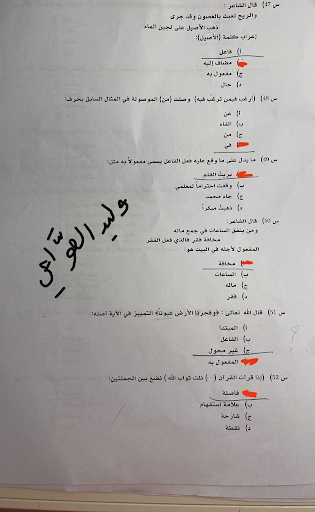 س 47) قال الشاعر :
والريح تعبث بالغصون وقد جرى
ذهب الأصيل على لجين الماء
إعراب كلمة (الأصيل):
أ) فاعل
مضاف إليه
ج) مفعول به
د) حال
س 48) (ارغب فيمن ترغب فيه) وصلت (من) الموصولة في المثال السابق بحرف:
أ) عن
ب) الفاء
ج) من
في
س 49) ما يدل على ما وقع عليه فعل الفاعل يسمى مفعولاً به مثل:
بريت القلم
ب) وقفت احتراماً لمعلمي
ج) جاء محمد
د) ذهبت مبكراً
س 50) قال الشاعر:
ومن ينفق الساعات في جمع ماله
مخافة فقر فالذي فعل الفقر
المفعول لأجله في البيت هو:
مخافة
ب) الساعات
ج) ماله
د) فقر
وليد الصوّاعي
س 51) قال الله تعالى : (وفجرنا الأرض عيوناً) التمييز في الآية أصله:
أ) المبتدأ
ب) الفاعل
ج) غير محول
المفعول به
س 52) (إذا قرأت القرآن (...) نلت ثواب الله ) نضع بين الجملتين:
فاصلة
ب) علامة استفهام
ج) شارحة
د) نقطة